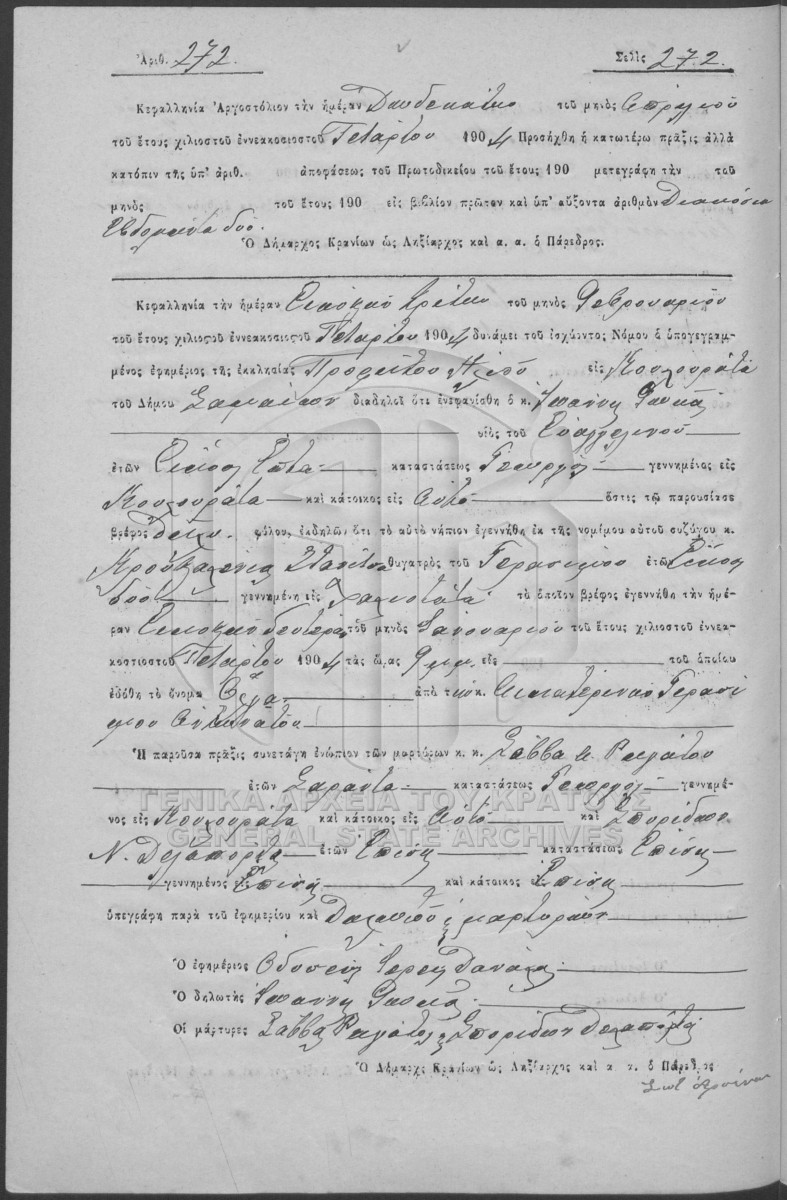 Ἀριθ. 272. Σελὶς 272.
Κεφαλληνία Ἀργοστόλιον τὴν ἡμέραν Δωδεκάτην τοῦ μηνὸς Ἀπριλίου
τοῦ ἔτους χιλιοστοῦ ἐννεακοσιοστοῦ Τετάρτου 1904 Προσήχθη ἡ κατωτέρω πρᾶξις ἀλλὰ
κατόπιν τῆς ὑπ' ἀριθ. ἀποφάσεως τοῦ Πρωτοδικείου τοῦ ἔτους 190 μετεγράφη τὴν τοῦ
μηνὸς τοῦ ἔτους 190 εἰς βιβλίον πρῶτον καὶ ὑπ' αὔξοντα ἀριθμὸν Διακόσια
Ἑβδομήκοντα δύο.
Ὁ Δήμαρχος Κρανίων ὡς Ληξίαρχος καὶ α. α. ὁ Πάρεδρος.
Κεφαλληνία τὴν ἡμέραν Εικοστήν τρίτην τοῦ μηνὸς Φεβρουαρίου
τοῦ ἔτους χιλιοστοῦ ἐννεακοσιοστοῦ Τετάρτου 1904 δυνάμει τοῦ ἰσχύοντος Νόμου ὁ ὑπογεγραμ-
μένος ἐφημέριος τῆς ἐκκλησίας Προφήτου Ηλιού εἰς Κουλουράτα
τοῦ Δήμου Σαμαίων διαδηλοῖ ὅτι ἐνεφανίσθη ὁ κ. Ἰωάννης
υἱὸς τοῦ Εὐαγγελινοῦ
ἐτῶν Εικοσι Επτα καταστάσεως Γεωργός γεννημένος εἰς
Κουλουράτα καὶ κάτοικος εἰς Αυτό ὅστις τῷ παρουσίασε
βρέφος φύλου, ἐκδηλῶν, ὅτι τὸ αὐτὸ νήπιον ἐγεννήθη ἐκ τῆς νομίμου αὐτοῦ συζύγου κ.
θυγατρὸς τοῦ Γερασίμου ἐτῶν Είκοσι
δύο γεννημένη εἰς τὸ ὁποῖον βρέφος ἐγεννήθη τὴν ἡμέ-
ραν Εικοστήν δευτέραν τοῦ μηνὸς Ιανουαρίου τοῦ ἔτους χιλιοστοῦ ἐννεα-
κοσιοστοῦ Τετάρτου 1904 τὰς ὥρας 9 μ.μ. εἰς τοῦ ὁποίου
ἐδόθη τὸ ὄνομα ἀπὸ τὴν κ. Αικατερίναν Γερασί
μου
Ἡ παροῦσα πρᾶξις συνετάγη ἐνώπιον τῶν μαρτύρων κ. κ. Σάββα
ἐτῶν Σαράντα καταστάσεως Γεωργός γεννημέ-
νος εἰς Κουλουράτα καὶ κάτοικος εἰς Αυτό καὶ Σπυρίδων
Ν. Δελαπόρτα ἐτῶν Επίσης καταστάσεως Επίσης
γεννημένος εἰς Επίσης καὶ κάτοικος εἰς Επίσης
ὑπεγράφη παρὰ τοῦ ἐφημερίου καὶ μαρτύρων
Ὁ ἐφημέριος Οδυσσεύς Ιερεύς
Ὁ δηλωτὴς Ιωάννης
Οἱ μάρτυρες Σάββας Σπυρίδων Δελαπόρτας
Ὁ Δήμαρχος Κρανίων ὡς Ληξίαρχος καὶ α. α. ὁ Πάρεδρος
ΓΕΝΙΚΑ ΑΡΧΕΙΑ ΤΟΥ ΚΡΑΤΟΥΣ
GENERAL STATE ARCHIVES